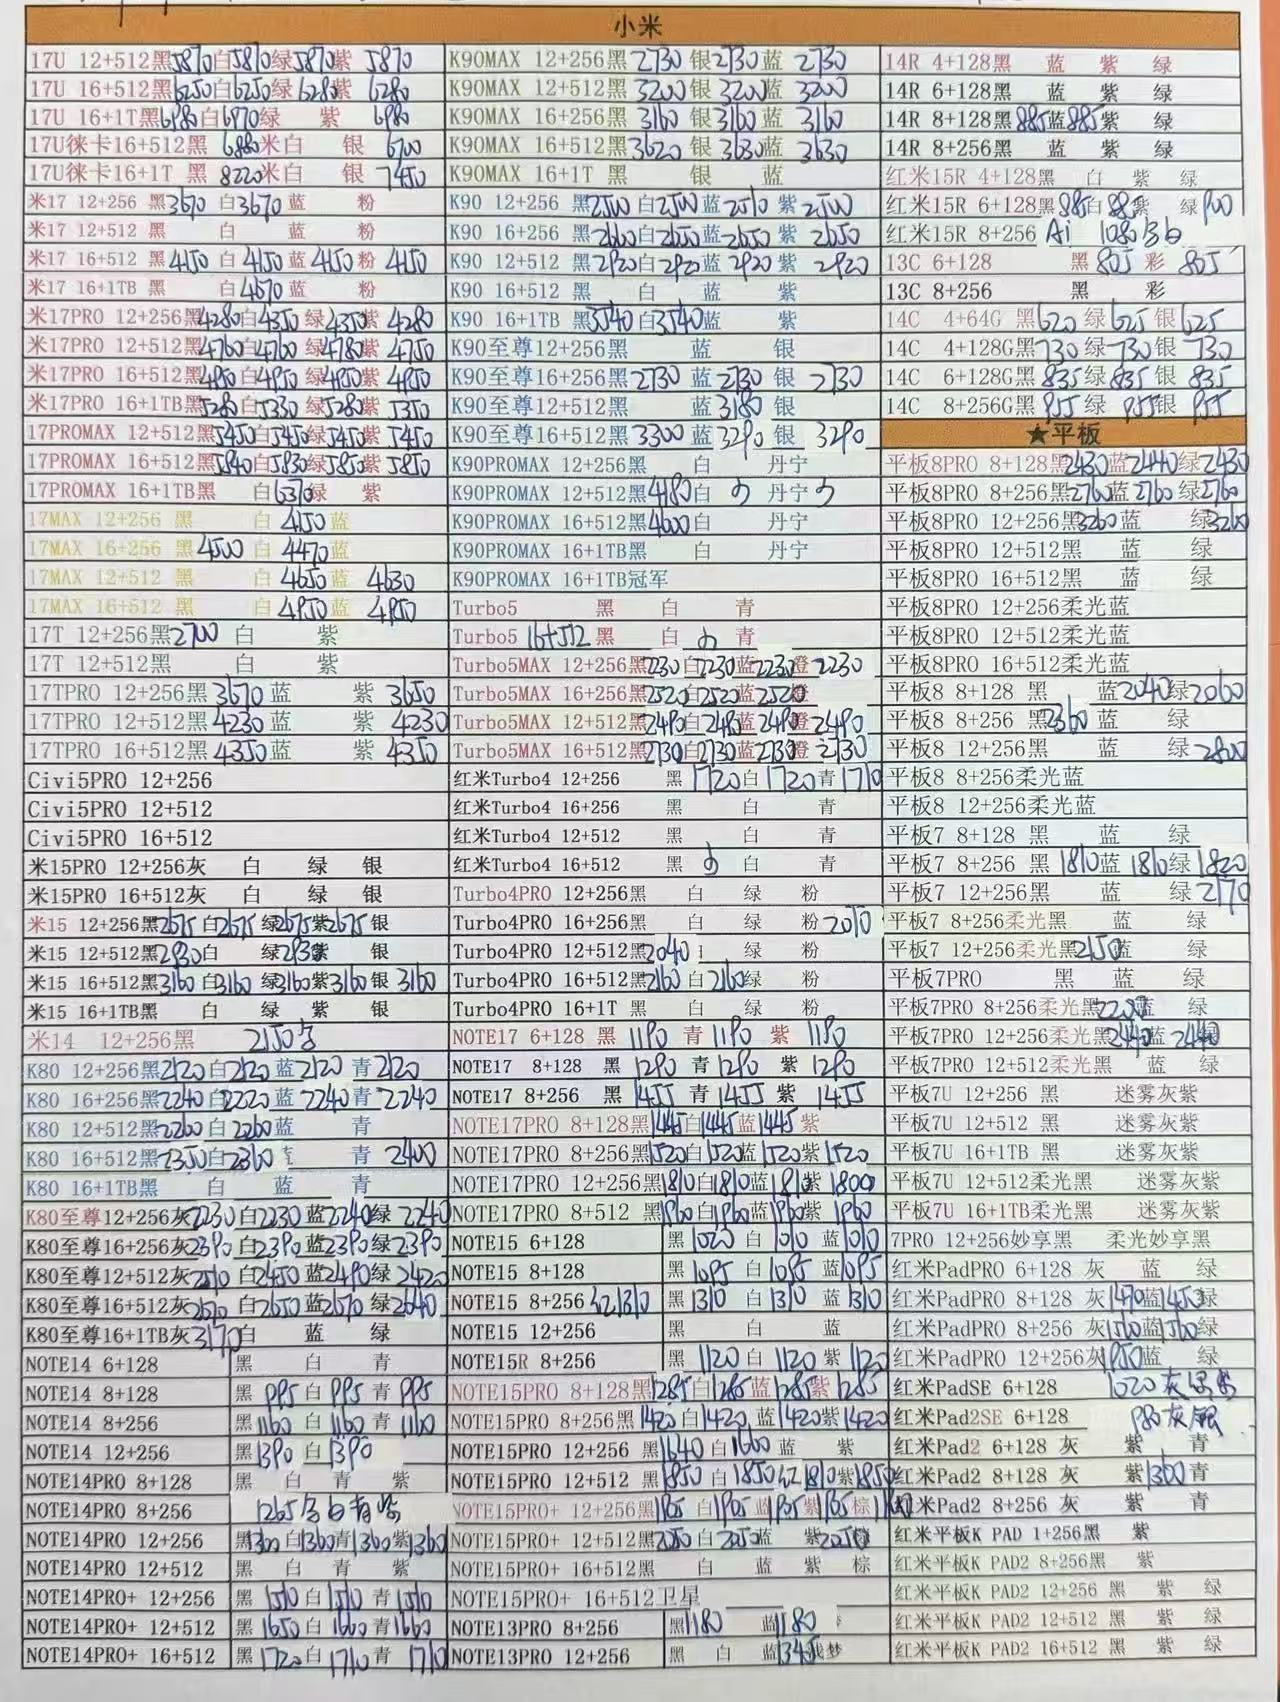 小米
17U 12+512黑5870白5810绿5870紫 5870
17U 16+512黑6250白6250绿 6280紫 6280
17U 16+1T黑6980白6970绿 紫 6980
17U徕卡16+512黑 6880米白 银 6700
17U徕卡16+1T 黑 8220米白 银 7450
米17 12+256 黑3670 白3670蓝 粉
米17 12+512 黑 白 蓝 粉
米17 16+512 黑4150 白4150蓝4150粉 4150
米17 16+1TB 黑 白4670蓝 粉
米17PRO 12+256黑4280白4350 绿4350紫 4280
米17PRO 12+512黑4760白4760 绿4780紫 4750
米17PRO 16+512黑4950白4950 绿4950紫 4950
米17PRO 16+1TB黑5280白5330 绿5280紫 5350
17PROMAX 12+512黑5450白5450绿5450紫 5450
17PROMAX 16+512黑5840白5830绿5850紫 5850
17PROMAX 16+1TB黑 白6370绿 紫
17MAX 12+256 黑 白 4150蓝
17MAX 16+256 黑4500 白 4470蓝
17MAX 12+512 黑 白 4650蓝 4630
17MAX 16+512 黑 白 4950蓝 4950
17T 12+256黑2700 白 紫
17T 12+512黑 白 紫
17TPRO 12+256黑3670蓝 紫 3650
17TPRO 12+512黑4230蓝 紫 4230
17TPRO 16+512黑4350蓝 紫 4350
Civi5PRO 12+256
Civi5PRO 12+512
Civi5PRO 16+512
米15PRO 12+256灰 白 绿 银
米15PRO 16+512灰 白 绿 银
米15 12+256黑2675白2675 绿2675紫2675银
米15 12+512黑2930白 绿293紫 银
米15 16+512黑3160白3160 绿3160紫3160银 3160
米15 16+1TB黑 白 绿 紫 银
米14 12+256黑 2150
K80 12+256黑2120白2120 蓝2120 青2120
K80 16+256黑2240白2220 蓝 2240青2240
K80 12+512黑2260白2260蓝 青
K80 16+512黑2350白2360 青 2400
K80 16+1TB黑 白 蓝 青
K80至尊12+256灰2230白2230 蓝2240绿 2240
K80至尊16+256灰2390白2390 蓝2390绿2390
K80至尊12+512灰2510白2450 蓝2490绿 2420
K80至尊16+512灰2620白2650 蓝2670 绿2640
K80至尊16+1TB灰3170白 蓝 绿
NOTE14 6+128 黑 白 青
NOTE14 8+128 黑 995白 995青 995
NOTE14 8+256 黑 1160白 1160青 1160
NOTE14 12+256 黑1390 白1390
NOTE14PRO 8+128 黑 白 青 紫
NOTE14PRO 8+256 1265 白青紫
NOTE14PRO 12+256 黑1360白1360青1360紫1360
NOTE14PRO 12+512 黑 白 青 紫
NOTE14PRO+ 12+256 黑 1510白 1510 青 1510
NOTE14PRO+ 12+512 黑 1650白 1660青1660
NOTE14PRO+ 16+512 黑 1720白 1710青 1710
K90MAX 12+256黑2730 银2730蓝 2730
K90MAX 12+512黑3200银3200蓝 3200
K90MAX 16+256黑3160银3160蓝 3160
K90MAX 16+512黑3620 银3630蓝 3630
K90MAX 16+1T 黑 银 蓝
K90 12+256 黑2500 白2500蓝2510 紫2500
K90 16+256 黑2660白2650蓝2650 紫2650
K90 12+512 黑2920白2920蓝2920 紫 2920
K90 16+512 黑 白 蓝 紫
K90 16+1TB 黑3540白3540蓝 紫
K90至尊12+256黑 蓝 银
K90至尊16+256黑2730 蓝2730 银 2730
K90至尊12+512黑 蓝3180 银
K90至尊16+512黑3300 蓝3290 银 3290
K90PROMAX 12+256黑 白 丹宁
K90PROMAX 12+512黑4180白 丹宁
K90PROMAX 16+512黑4600白 丹宁
K90PROMAX 16+1TB黑 白 丹宁
K90PROMAX 16+1TB冠军
Turbo5 黑 白 青
Turbo5 16+512黑 白 青
Turbo5MAX 12+256黑2230白2230蓝2230橙2230
Turbo5MAX 16+256黑2520白2520蓝2520橙
Turbo5MAX 12+512黑2490白2490蓝2490橙2490
Turbo5MAX 16+512黑2730白2730蓝2730橙2730
红米Turbo4 12+256 黑 1720白1720青1710
红米Turbo4 16+256 黑 白 青
红米Turbo4 12+512 黑 白 青
红米Turbo4 16+512 黑 白 青
Turbo4PRO 12+256黑 白 绿 粉
Turbo4PRO 16+256黑 白 绿 粉2010
Turbo4PRO 12+512黑2040 绿 粉
Turbo4PRO 16+512黑2160 白2160绿 粉
Turbo4PRO 16+1T 黑 白 绿 粉
NOTE17 6+128 黑 1190 青1190 紫 1190
NOTE17 8+128 黑 1290 青1290 紫 1290
NOTE17 8+256 黑1455青1455紫 1455
NOTE17PRO 8+128黑1445白1445蓝1445紫
NOTE17PRO 8+256黑1520白1520蓝1520紫 1520
NOTE17PRO 12+256黑1810白1810蓝1810紫1800
NOTE17PRO 8+512 黑1960白1960蓝1960紫 1960
NOTE15 6+128 黑1020 白 1010 蓝1010
NOTE15 8+128 黑1095 白 1095蓝1095
NOTE15 8+256 红1310 黑1310 白1310 蓝1310
NOTE15 12+256 黑 白 蓝
NOTE15R 8+256 黑 1120白 1120紫 1120
NOTE15PRO 8+128黑1285白1285蓝1285紫1285
NOTE15PRO 8+256黑1420白1420 蓝1420紫1420
NOTE15PRO 12+256 黑1640白1660蓝 紫
NOTE15PRO 12+512 黑1850 白1850红1810紫1850
NOTE15PRO+ 12+256黑1905白1905蓝1905紫1905棕
NOTE15PRO+ 12+512黑2050白2050蓝 紫2050
NOTE15PRO+ 16+512黑 白 蓝 紫 棕
NOTE15PRO+ 16+512卫星
NOTE13PRO 8+256 黑1180 蓝1180
NOTE13PRO 12+256 黑 白 蓝1345 梦
14R 4+128黑 蓝 紫 绿
14R 6+128黑 蓝 紫 绿
14R 8+128黑885蓝885紫 绿
14R 8+256黑 蓝 紫 绿
红米15R 4+128黑 白 紫 绿
红米15R 6+128黑885白885紫 绿900
红米15R 8+256 Ai 1080 白
13C 6+128 黑 805 彩 805
13C 8+256 黑 彩
14C 4+64G 黑620绿625银625
14C 4+128G黑730绿730银 730
14C 6+128G黑835绿835银 835
14C 8+256G黑955绿 955银955
★平板
平板8PRO 8+128黑2430蓝2440绿2430
平板8PRO 8+256黑2760蓝2760 绿2760
平板8PRO 12+256黑3260蓝 绿3260
平板8PRO 12+512黑 蓝 绿
平板8PRO 16+512黑 蓝 绿
平板8PRO 12+256柔光蓝
平板8PRO 12+512柔光蓝
平板8PRO 16+512柔光蓝
平板8 8+128 黑 蓝2040绿2060
平板8 8+256 黑2360蓝 绿
平板8 12+256黑 蓝 绿2800
平板8 8+256柔光蓝
平板8 12+256柔光蓝
平板7 8+128 黑 蓝 绿
平板7 8+256 黑1810蓝1810绿1820
平板7 12+256黑 蓝 绿2170
平板7 8+256柔光黑 蓝 绿
平板7 12+256柔光黑2150蓝 绿
平板7PRO 黑 蓝 绿
平板7PRO 8+256柔光黑220蓝 绿
平板7PRO 12+256柔光黑2440蓝2440
平板7PRO 12+512柔光黑 蓝 绿
平板7U 12+256 黑 迷雾灰紫
平板7U 12+512 黑 迷雾灰紫
平板7U 16+1TB 黑 迷雾灰紫
平板7U 12+512柔光黑 迷雾灰紫
平板7U 16+1TB柔光黑 迷雾灰紫
7PRO 12+256妙享黑 柔光妙享黑
红米PadPRO 6+128 灰 蓝 绿
红米PadPRO 8+128 灰1470蓝1450绿
红米PadPRO 8+256 灰1510蓝1560绿
红米PadPRO 12+256灰1950蓝 绿
红米PadSE 6+128 1020 灰
红米Pad2SE 6+128 980灰银
红米Pad2 6+128 灰 紫 青
红米Pad2 8+128 灰 紫1300青
红米Pad2 8+256 灰 紫 青
红米平板K PAD 1+256黑 紫
红米平板K PAD2 8+256黑 紫
红米平板K PAD2 12+256 黑 紫 绿
红米平板K PAD2 12+512 黑 紫 绿
红米平板K PAD2 16+512 黑 紫 绿